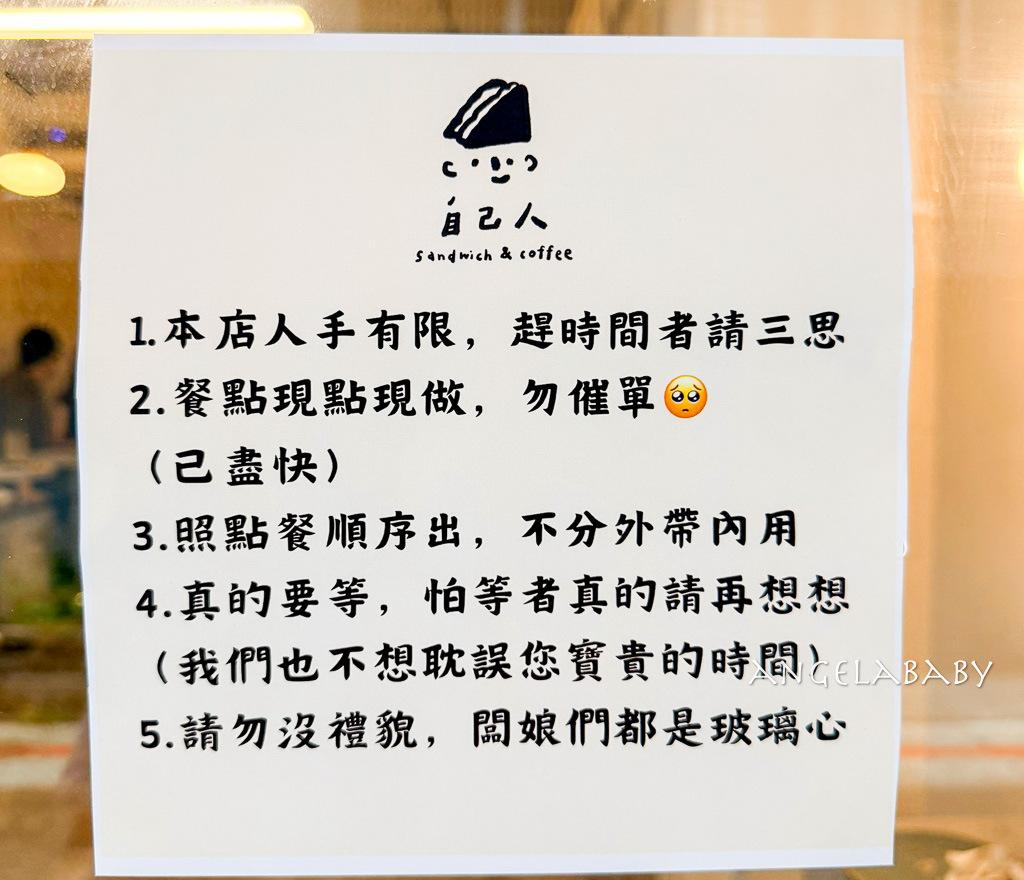 自己人
sandwich & coffee
1.本店人手有限，趕時間者請三思
2.餐點現點現做，勿催單🥺
（已盡快）
3.照點餐順序出，不分外帶內用
4.真的要等，怕等者真的請再想想
（我們也不想耽誤您寶貴的時間）
ANGELABABY
5.請勿沒禮貌，闆娘們都是玻璃心